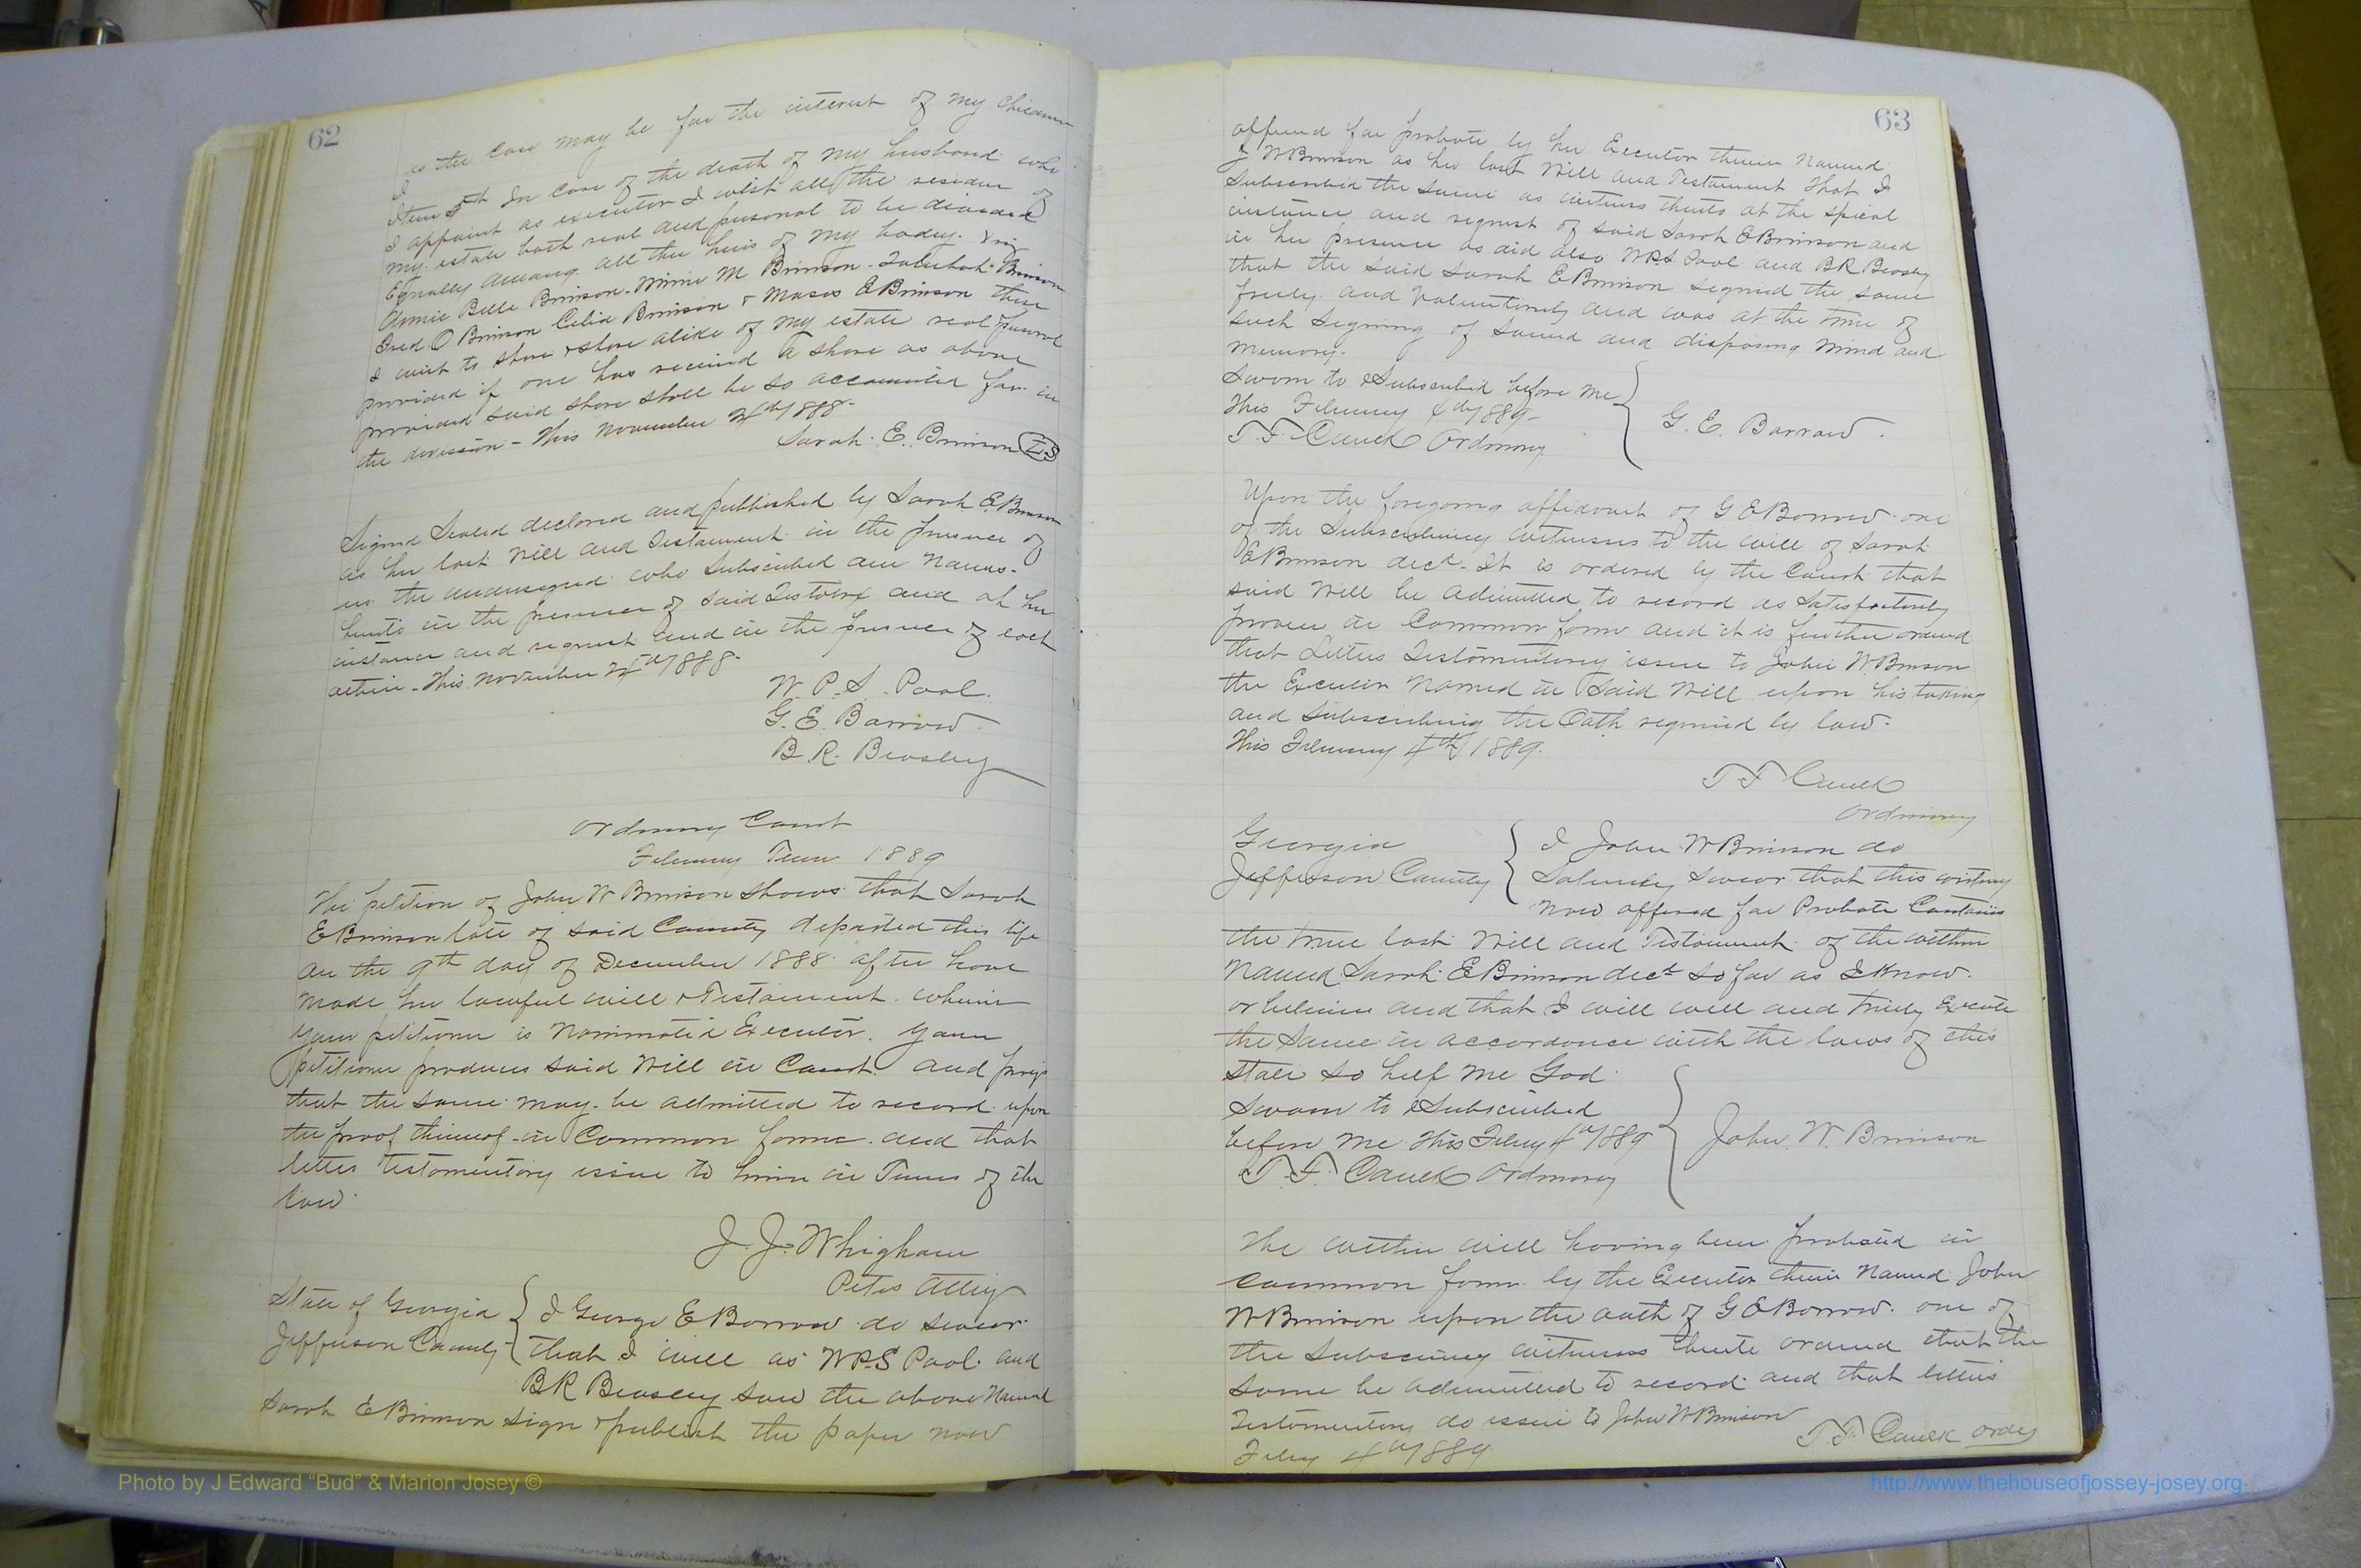 62
as the case may be for the interest of my children
I
Item 5th In case of the death of my husband who
I appoint as executor I wish all the residue of
my estate both real and personal to be divided
Equally among all the heirs of my body. viz
Annie Belle Brinson - Minnie M Brinson - Brinson
Fred O Brinson Celia Brinson & Moses E Brinson these
I wish to share & share alike of my estate real & personal
provided if one has received a share as above
provided said share shall be so accounted for in
the division - This November 24th/1888 -
Sarah. E. Brinson LS
Signed Sealed declared and published by Sarah E. Brinson
as her last Will and Testament in the presence of
us the undersigned who Subscribed our Names -
hereto in the presence of said Testatrix and at her
instance and request and in the presence of each
other - This November 24th/1888 -
W. P. S. Pool.
G. E. Barrow -
B. R. Beasley
Ordinary Court
February Term 1889
The petition of John W Brinson shows that Sarah
E Brinson late of said County departed this life
on the 9th day of December 1888 after have
made her lawful will & Testament. wherein
your petitioner is Nominated Executor. your
petitioner produces said Will in Court and prays
that the same may be admitted to record upon
the proof thereof in Common form. and that
letters testamentary issue to him in Terms of the
law.
J. J. Whigham
Petrs Atty
State of Georgia { I George E Barrow do swear
Jefferson County - { that I will as W.P.S Pool. and
BR Beasley saw the above Named
Sarah E Brinson sign & publish the paper now
63
offered for probate by her Executor therein Named
J W Brinson as her last Will and Testament that I
Subscribed the same as witness thereto at the spical
instance and request of said Sarah E Brinson and
in her presence as did also W.P.S Pool and BR Beasley
that the said Sarah E Brinson signed the same
freely and voluntarily and was at the time of
such signing of sound and disposing mind and
memory.
Sworn to & Subscribed before me
This February 4th/1889 -
G. E. Barrow.
T. F. Caulk Ordinary
Upon the foregoing affidavit of G E Barrow one
of the Subscribing witnesses to the will of Sarah
E Brinson decd - It is ordered by the Court that
said Will be admitted to record as satisfactorily
proven in Common form and it is further ordered
that Letters Testamentary issue to John W. Brinson
the Executor Named in said Will upon his taking
and Subscribing the Oath required by law.
This February 4th 1889.
T F Caulk
Ordinary
Georgia { I John W Brinson do
Jefferson County { Solemnly swear that this writing
now offered for Probate Contains
the true last Will and Testament of the within
Named Sarah E Brinson decd so far as I know.
or believe and that I will well and truly Execute
the same in accordance with the laws of this
State so help me God.
Sworn to & Subscribed
before me this Feby 4th/1889
John W. Brinson
T. F. Caulk Ordinary
The within will having been probated in
common form by the Executor therein Named John
W Brinson upon the oath of G E Barrow one of
the Subscribing witnesses thereto ordered that the
same be admitted to record and that letters
Testamentary do issue to John W Brinson
T F Caulk Ordy
Feby 4th/1889
Photo by J Edward “Bud” & Marion Josey ©
http://www.thehouseofjossey-josey.org